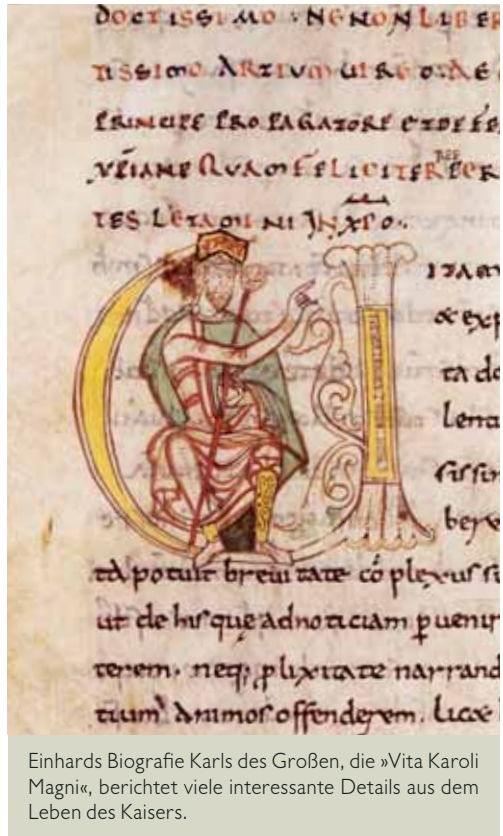 DOCTISSIMO NON LIBER
TISSIMO ARTIUM
PRINCIPE PROPAGATORE ET DEFE
QUAM FELICITER
TES IN XPO·
ITAM
& exp
ta do
bere
ta potuit breui tate cō plexus
ut de his que ad noticiam puenir
terem. neq; plixitate narrand
tium animos offenderem. Lice
Einhards Biografie Karls des Großen, die »Vita Karoli
Magni«, berichtet viele interessante Details aus dem
Leben des Kaisers.